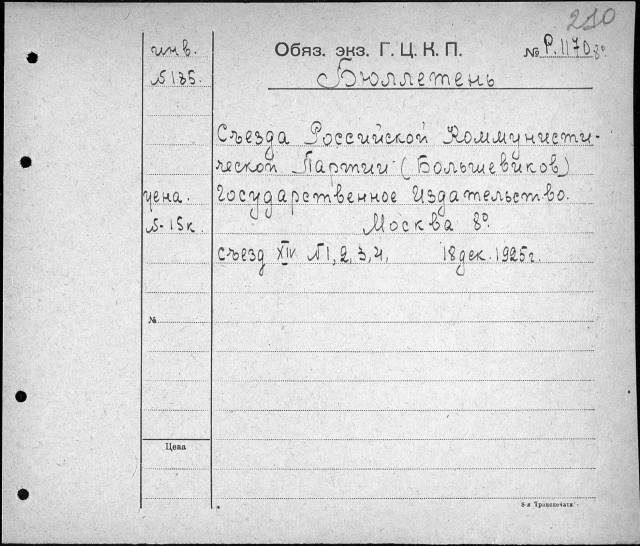 210
инв.
Обяз. экз. Г. Ц. К. П.
№ Р. 1170 8º
№ 135.
Бюллетень
Съезда Российской Коммунисти-
ческой Партии (Большевиков)
цена.
Государственное Издательство.
№-15к.
Москва 8º
съезд XIV №1, 2, 3, 4, 18 дек. 1925г.
№
Цена
8-я